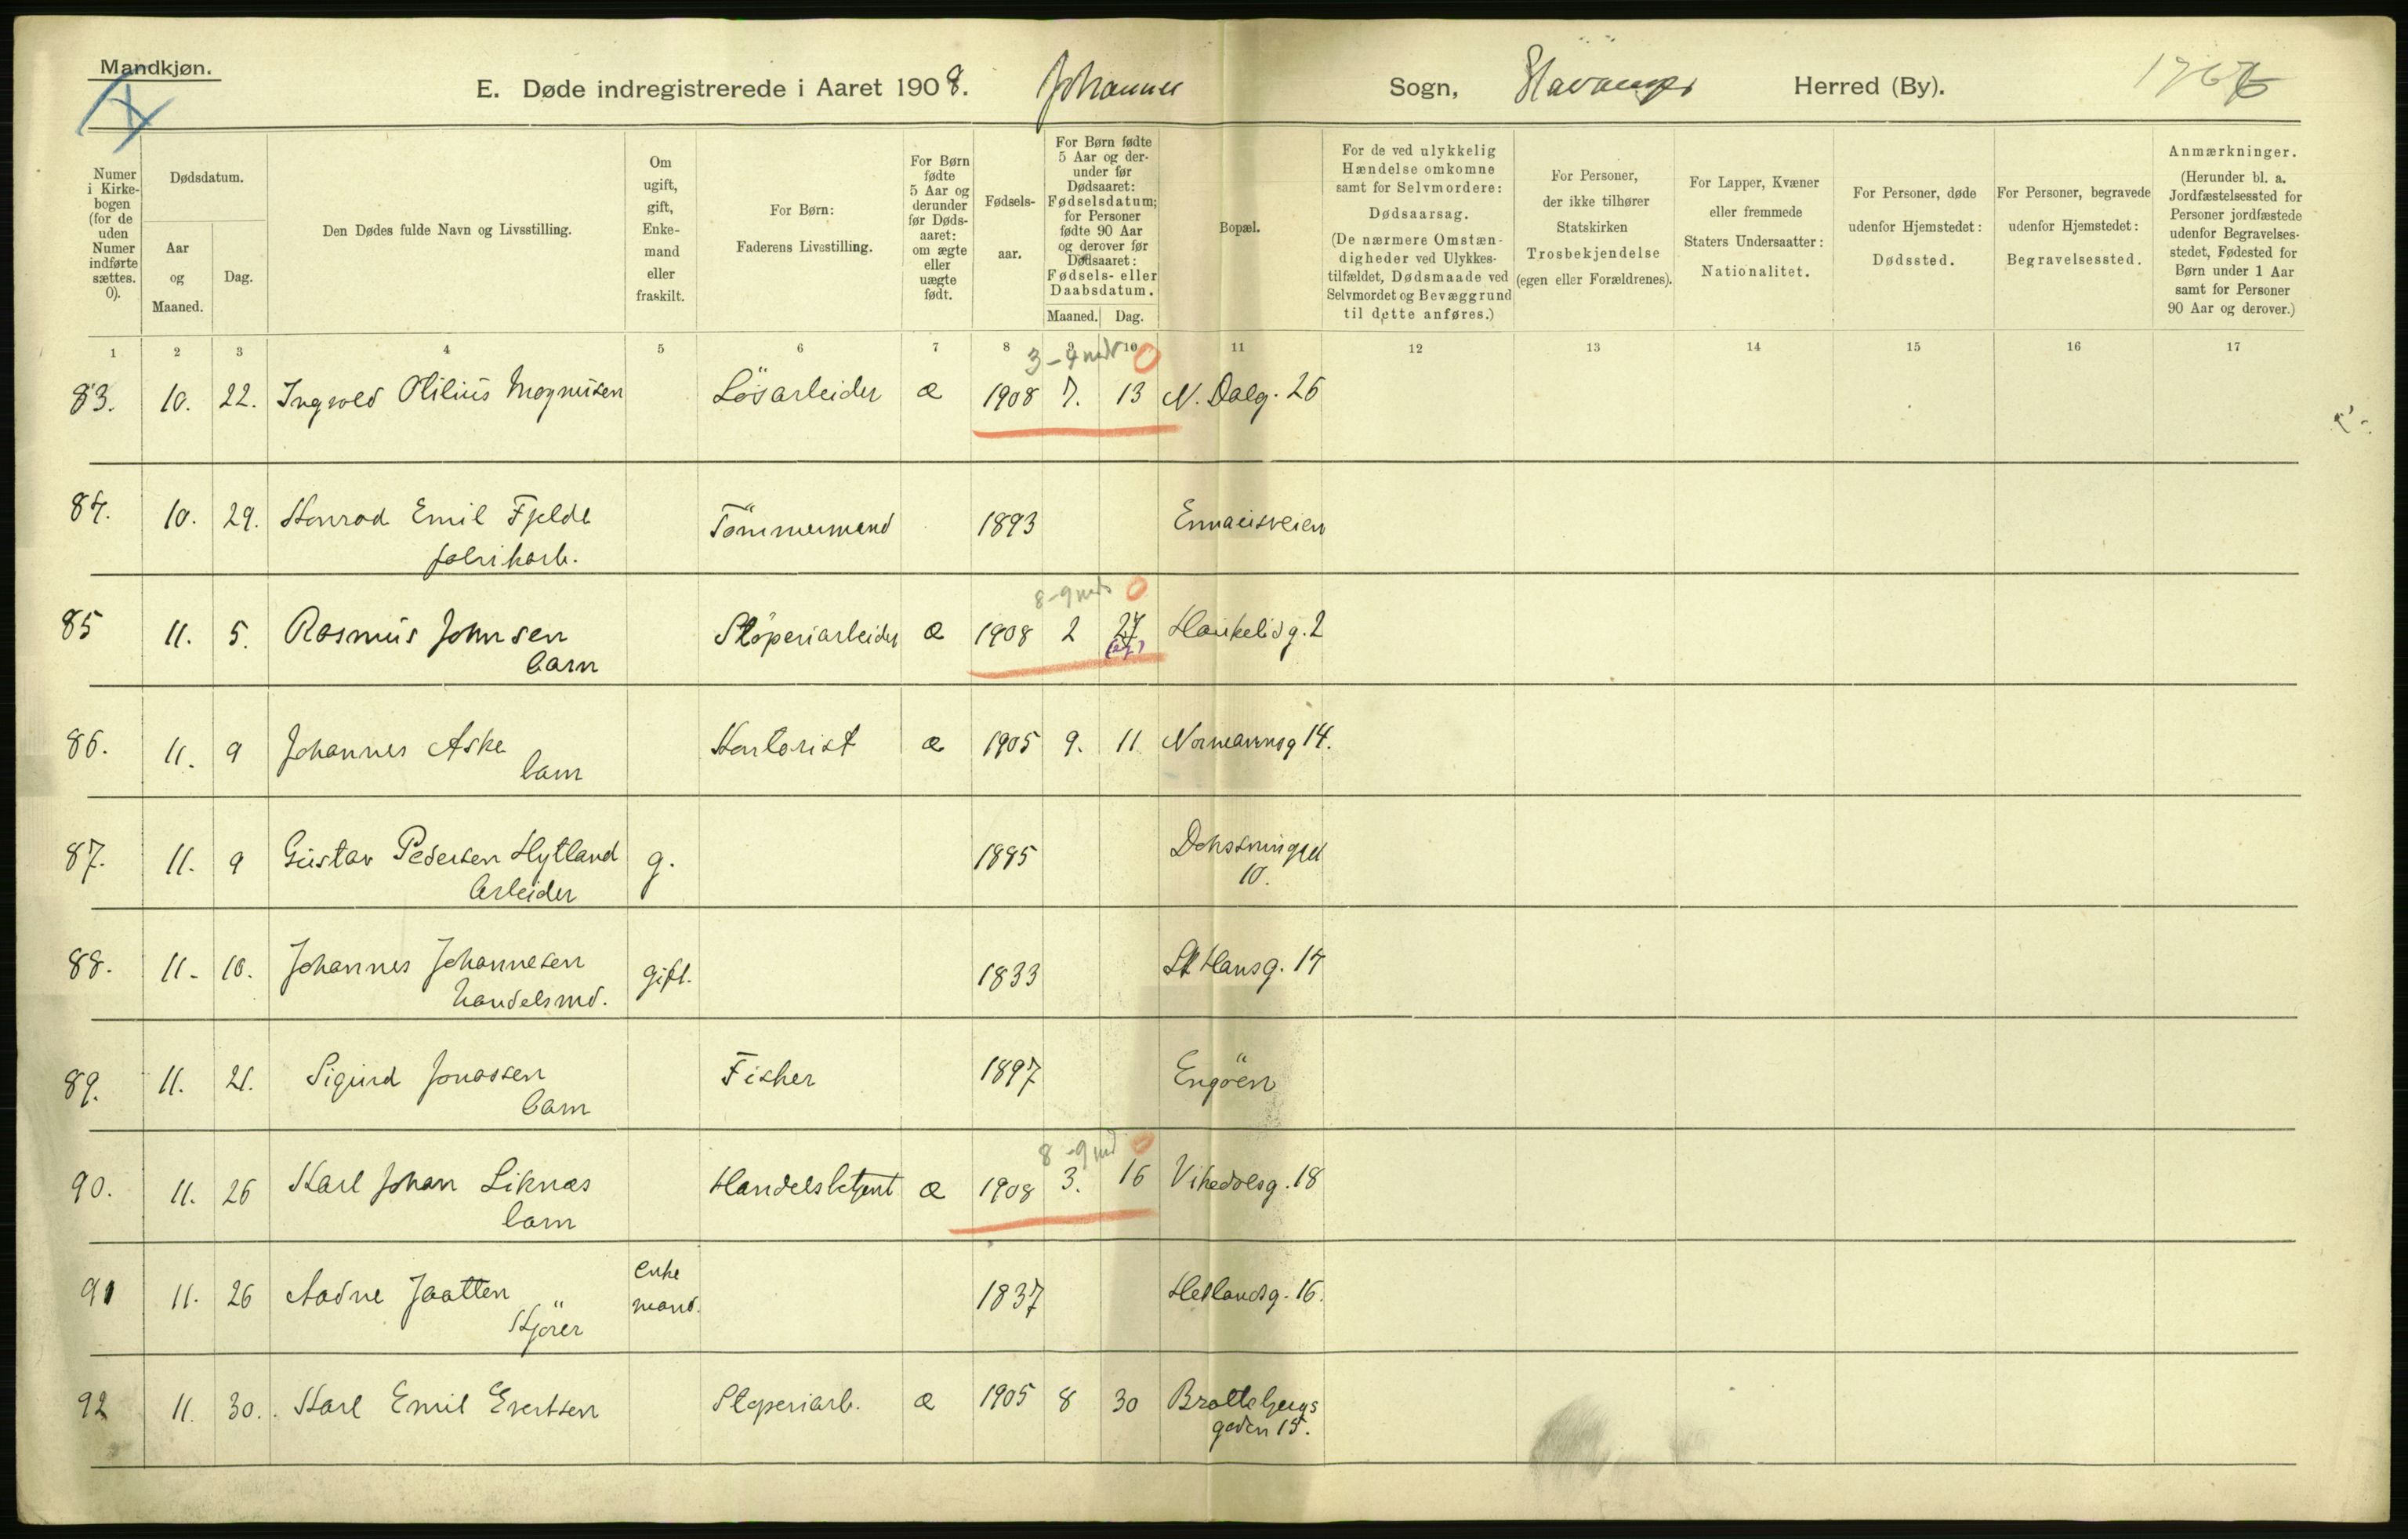 Mandkjøn.
E. Døde indregistrerede i Aaret 1908. Johannes Sogn, Stavanger Herred (By).
Numer i Kirke-bogen (for de uden Numer indførte sættes. 0).
Dødsdatum.
Aar og Maaned.
Dag.
Den Dødes fulde Navn og Livsstilling.
Om ugift, gift, Enke-mand eller fraskilt.
For Børn: Faderens Livsstilling.
For Børn fødte 5 Aar og derunder før Døds-aaret: om ægte eller uægte født.
Fødsels-aar.
For Børn fødte 5 Aar og der-under før Dødsaaret: Fødselsdatum; for Personer fødte 90 Aar og derover før Dødsaaret: Fødsels- eller Daabsdatum.
Maaned. Dag.
Bopæl.
For de ved ulykkelig Hændelse omkomne samt for Selvmordere: Dødsaarsag. (De nærmere Omstæn-digheder ved Ulykkes-tilfældet, Dødsmaade ved Selvmordet og Bevæggrund til dette anføres.)
For Personer, der ikke tilhører Statskirken Trosbekjendelse (egen eller Forældrenes).
For Lapper, Kvæner eller fremmede Staters Undersaatter: Nationalitet.
For Personer, døde udenfor Hjemstedet: Dødssted.
For Personer, begravede udenfor Hjemstedet: Begravelsessted.
Anmærkninger. (Herunder bl. a. Jordfæstelsessted for Personer jordfæstede udenfor Begravelses-stedet, Fødested for Børn under 1 Aar samt for Personer 90 Aar og derover.)
1 2 3 4 5 6 7 8 9 10 11 12 13 14 15 16 17
3-4 mdr 0
83. 10. 22. Ingvald Otilius Magnusen Løsarbeider æ 1908 7. 13 N. Dalg. 26
84. 10. 29. Konrad Emil Fjelde Tömmermand 1893 Emmausveien
fabrikarb.
8-9 mdr 0
85 11. 5. Rasmus Johnsen Støperiarbeider æ 1908 2 27 Haukelidg. 2
barn
86. 11. 9 Johannes Aske Kontorist æ 1905 9. 11 Normannsg 14.
barn
87. 11. 9 Gustav Pedersen Hytland g. 1895
arbeider 10.
88. 11. 10. Johannes Johannesen gift. 1833 St Hansg. 14
handelsmd.
89. 11. 21. Sigurd Jonassen Fisker 1897 Engöen
barn
8-9 md 0
90. 11. 26 Karl Johan Liknæs Handelsbetjent æ 1908 3. 16 Vikedalsg. 18
barn
91 11. 26 Aadne Jaatten enke 1837 Hetlandsg. 16.
Kjörer mand.
92 11. 30. Karl Emil Evertsen Støperiarb. æ 1905 8 30 Brattebergs
gaden 15.